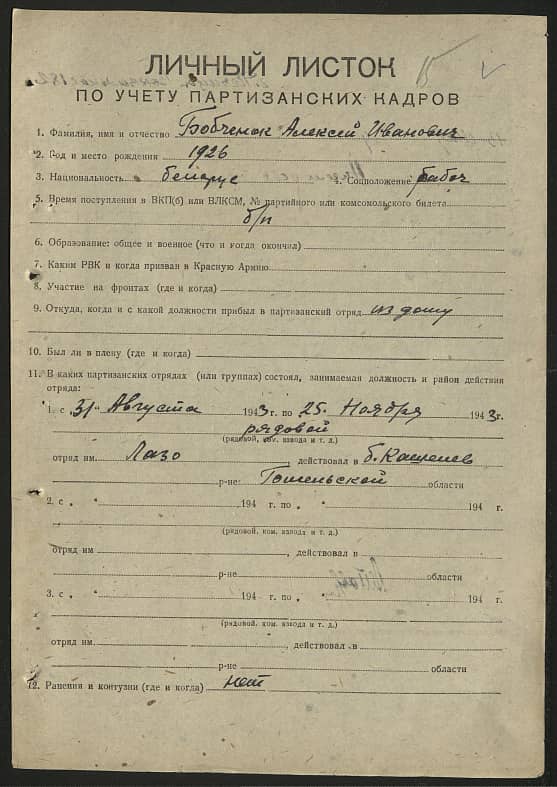 15
ЛИЧНЫЙ ЛИСТОК
ПО УЧЕТУ ПАРТИЗАНСКИХ КАДРОВ
1. Фамилия, имя и отчество Бобченок Алексей Иванович
2. Год и место рождения 1926
3. Национальность беларус 4. Соцположение рабоч
5. Время поступления в ВКП(б) или ВЛКСМ, № партийного или комсомольского билета
б/п
6. Образование: общее и военное (что и когда окончил)
7. Каким РВК и когда призван в Красную Армию
8. Участие на фронтах (где и когда)
9. Откуда, когда и с какой должности прибыл в партизанский отряд из дому
10. Был ли в плену (где и когда)
11. В каких партизанских отрядах (или группах) состоял, занимаемая должность и район действия
отряда:
1. с „31" Августа 1943 г. по „25" Ноября 1943г.
рядовой
(рядовой, ком. взвода и т. д.)
отряд им. Лазо действовал в б.
р-не Гомельской области
2. с „ " 194 г. по „ " 194 г.
(рядовой, ком. взвода и т. д.)
отряд им , действовал в
р-не области
3. с „ " 194 г. по „ " 194 г.
(рядовой, ком. взвода и т. д.)
отряд им. , действовал в
р-не области
12. Ранения и контузии (где и когда) нет